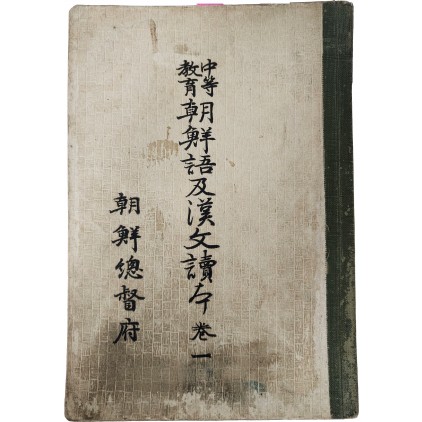 中等教育 朝鮮語及漢文讀本 卷一
朝鮮總督府